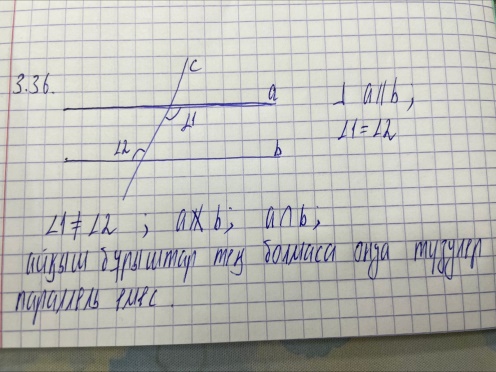 3.36.
c
a
∠1
∠2
b
⊥ a∥b;
∠1=∠2
∠1≠∠2 ; a∦b; a∩b;
айқыш бұрыштар тең болмаса онда түзулер
параллель емес.